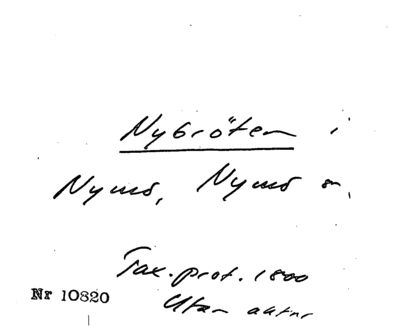 Nybröten i
Nymö, Nymö sn.
Tax.prot. 1800
Nr 10820
Utan aktnr